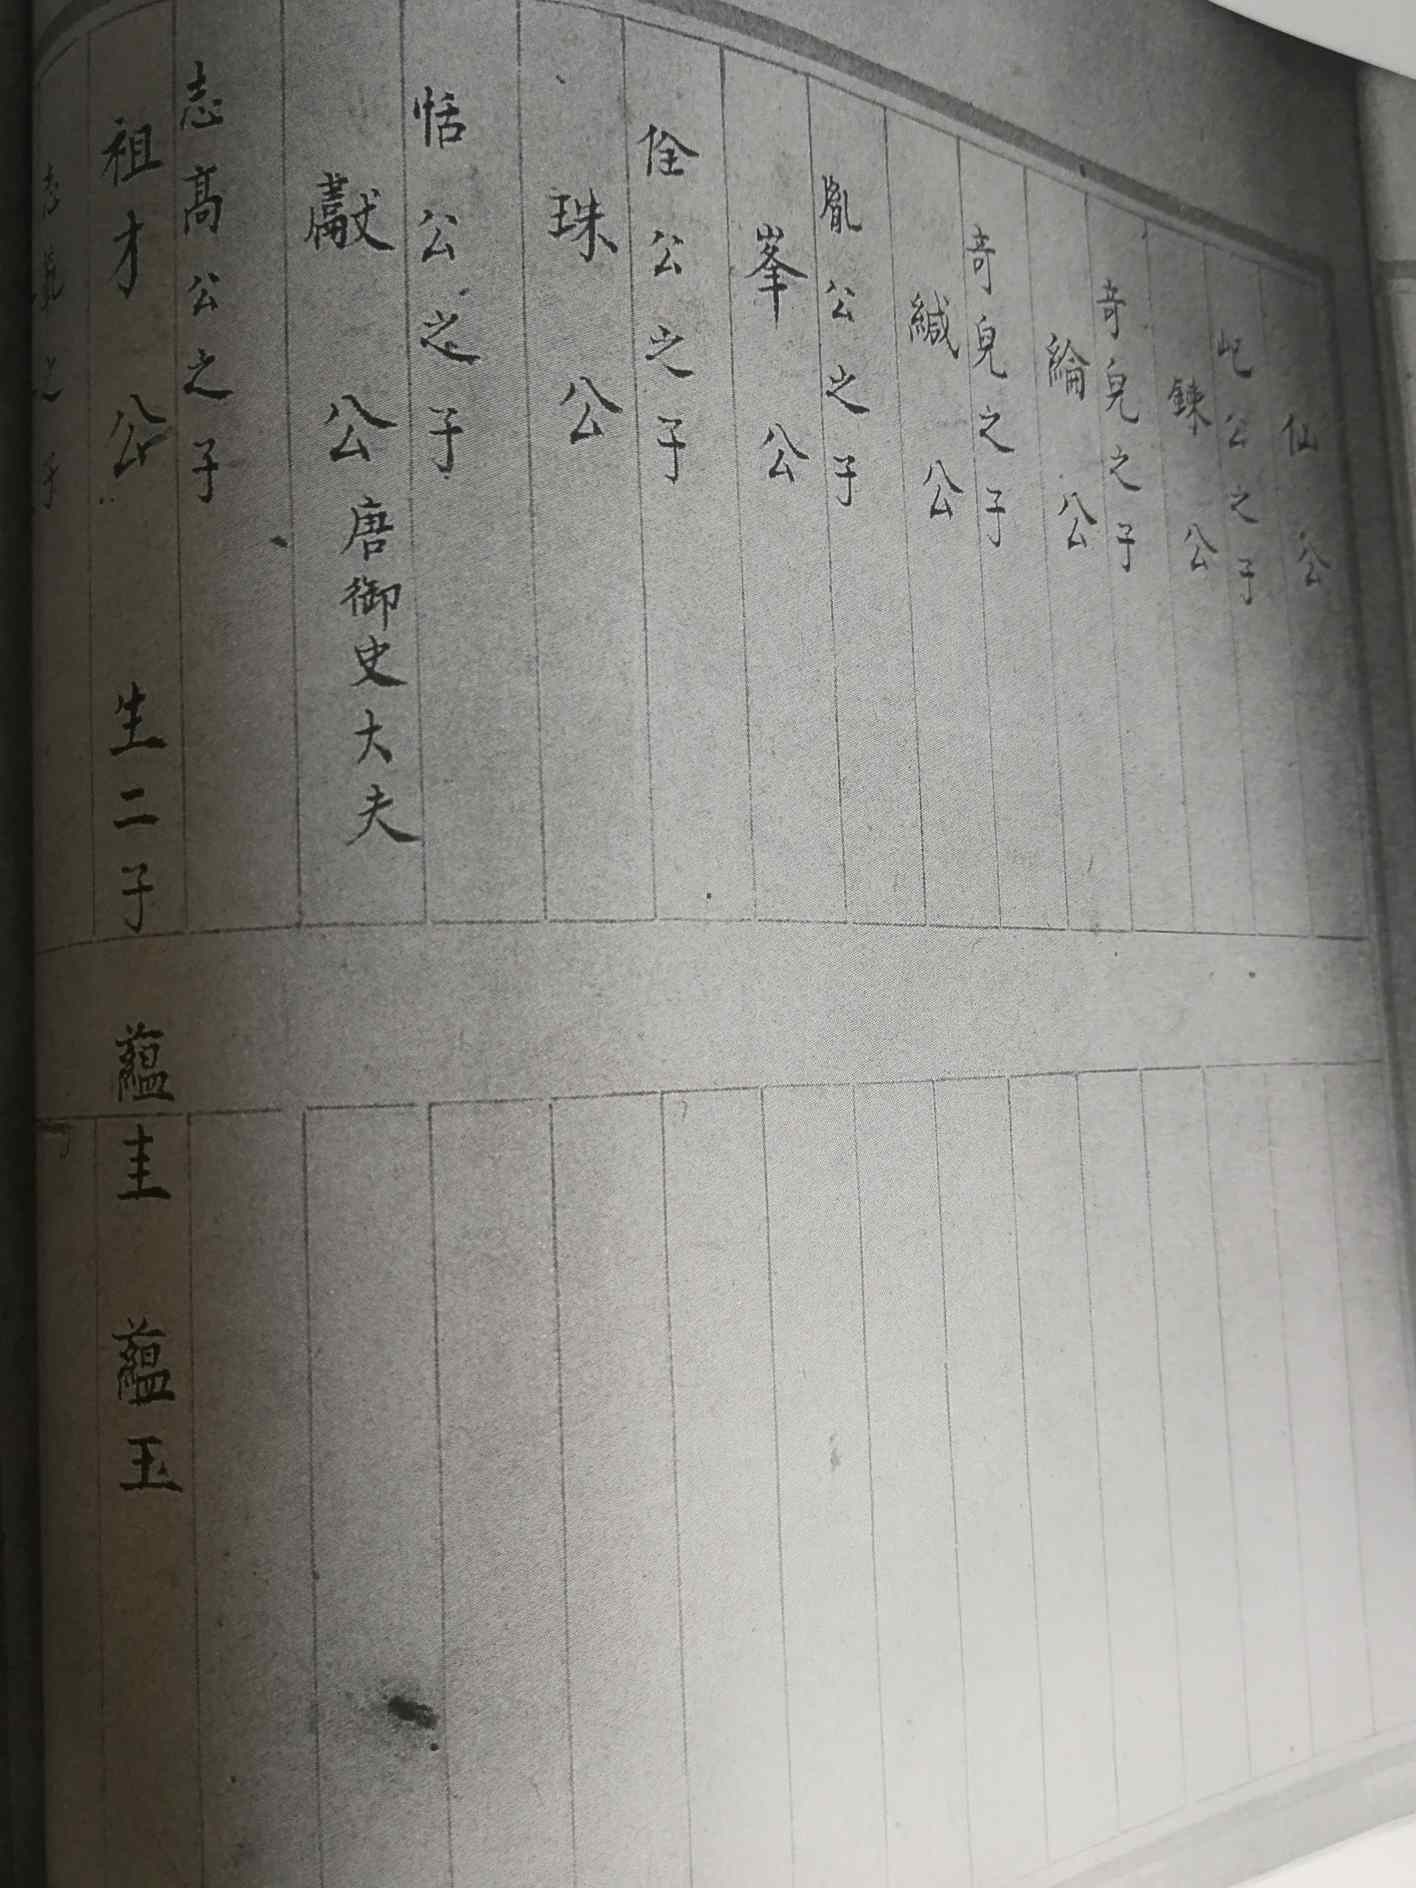 仙公
屺公之子
鍊公
奇兒之子
綸公
奇兒之子
緘公
胤公之子
峯公
佺公之子
珠公
恬公之子
獻公 唐御史大夫
志高公之子
祖才公 生二子 蘊圭 蘊玉
之子